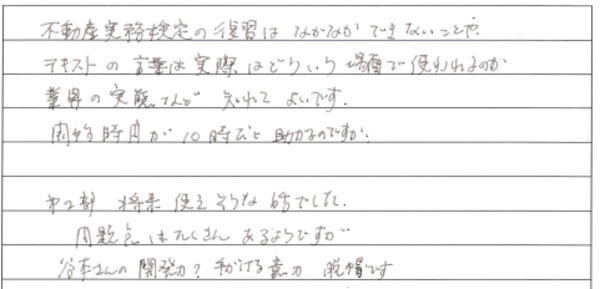 不動産実務検定の復習は なかなか できないことや、
テキストの言葉は実際はどういう場面で使われるのか
業界の実態なんど 知れて よいです。
開始時間が 10時だと 助かるのですが。
第2部 将来 使えそうな 話でした。
問題点はたくさん あるようですが
谷本さんの 開発力? 手がける意力 脱帽です